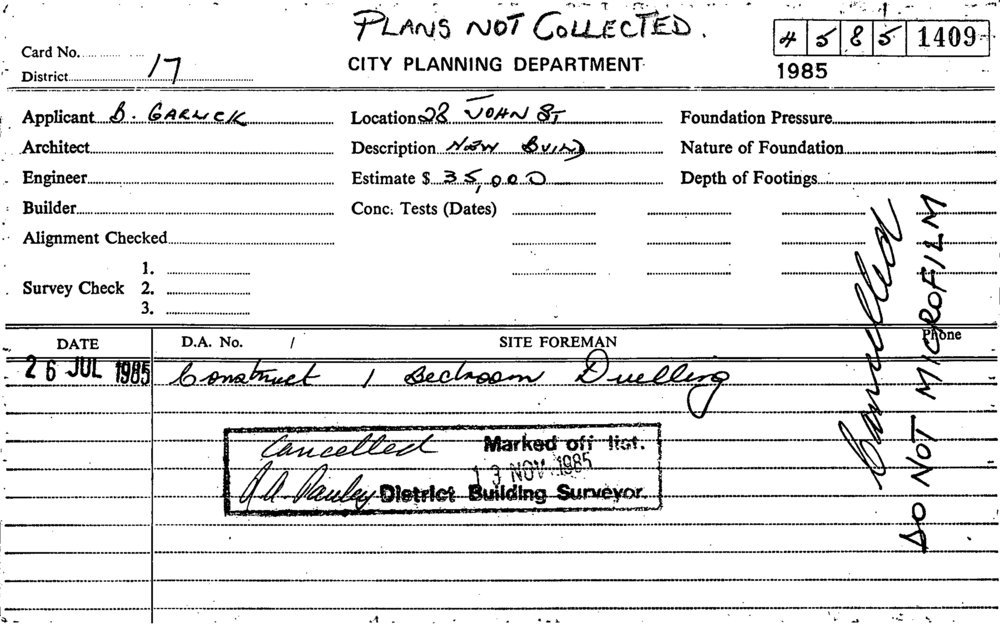 PLANS NOT COLLECTED.
4 5 8 5 1409
Card No.
CITY PLANNING DEPARTMENT
1985
District 17
Applicant B. GARWICK Location 28 JOHN ST Foundation Pressure
Architect Description NEW BUILD Nature of Foundation
Engineer Estimate $ 35,000 Depth of Footings
Builder Conc. Tests (Dates)
Alignment Checked
1.
Survey Check 2.
3.
Cancelled
DO NOT MICROFILM
DATE D.A. No. / SITE FOREMAN Phone
26 JUL 1985 Construct 1 Bedroom Dwelling
Cancelled Marked off list.
13 NOV 1985
District Building Surveyor.